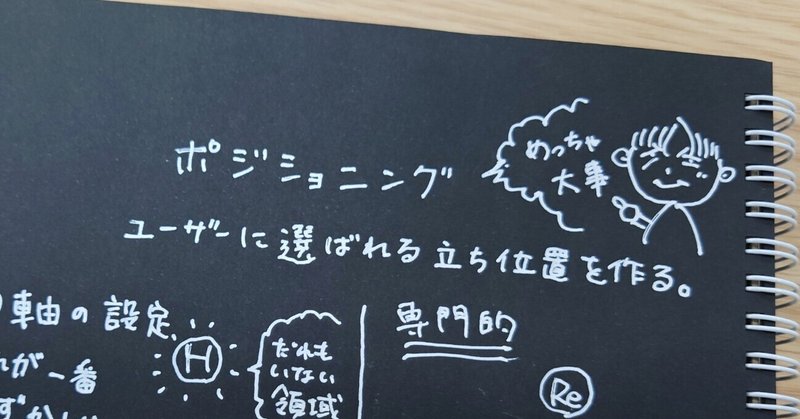 ポジショニング
めっちゃ
大事
ユーザーに選ばれる立ち位置を作る。
軸の設定
が一番
H
だれも
いない
領域
専門的
Re